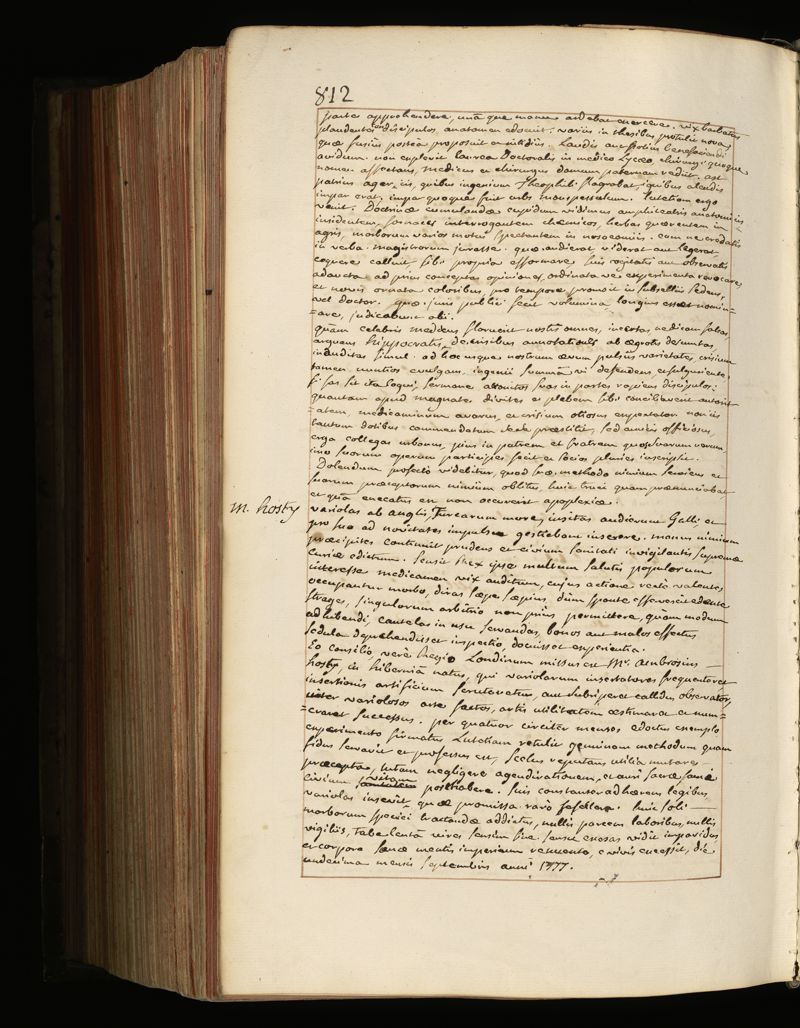 812
partes apprehendere, unâ que manu ardebat exercere. vix barbatus
plaudentes discipulos, anatomen edocuit: varios in thesibus protulit novas
quæ fusius postea proposuit ac nitidius. Laudis aut potius benefaciendi
avidum non explevit laurea Doctoralis in medico Lycæo, chirurgi quoque
nomen affectans, medicus et chirurgus domum paternam rediit. ast
patrius ager iis, quibus ingenium Theophili flagrabat, ignibus alendis
impar erat, impar quoque fuit urbs monspessulum. Lutetiam ergo
venit. Doctrinæ cumulandæ cupidum vidimus amphiteatris anatomicis
insidentem, fornaces interrogantem chemicos, herbas quærentem in
agris, morborum varios motus spectantem in nosocomiis. cum ne credatis
in verba magistrorum jurasse. quæ audierat viderat aut legerat
coquere calluit, sibi propria efformare. suis cogitatis aut observatis
adaucta ad prius conceptas opiniones, ordinata ad experimenta revocare
et novis ornata coloribus pro tempore promsit in subselliis sedens,
vel doctor. quæ juris publici fecit volumina longius esset nomin=
=are, judicabunt alii.
quàm celebris medicus floruerit nostis omnes, incertas medicam
arguens hippocratis, de crisibus annotationes ab ægrotis desumtas,
induditas simul. ad hoc usque nostrum ævum pulsus varietates, crisium
tamen nuntios evulgans. ingenii summâ vi defendens,
si fas sit ita loqui, sermone attonitos suas in partes rapiens discipulos:
quantam apud magnates divites et plebem sibi conciliaverit autorit
=atem, medicaminum avarus, et crisium otiosus expectator. non iis
tantum dotibus commendatum sese præstitit, sed amicis officiosus,
erga collegas urbanus, pius in patrem et fratrem quos suarum rerum
imo suorum operum participes fecit et socios pluries inscripsit.
Dolendum profectò videbitur, quod suæ methodo nimium serviens et
suorum præceptorum nimiùm oblitus, huic truci quam prænunciabat
et quâ enecatus est non occurrerit apoplexiæ.
m. hosty
variolas ab anglis, Turcarum more, insitas audierant Galli et
pro suo ad novitates impulsu gestiebant inserere. manus nimium
præcipites continuit prudens et civium sanitati invigilantis supremæ
Curiæ edictum. sensit Rex ipse multum salutis populorum
interesse medicamen vix auditum, cujus actione verè valentes
occupantur morbo, diras sæpe sæpius, dum sponte efferverit edente
strages, singulorum arbitrio non prius permittere, quàm modum
adhibendi, cautelas in usu servandas, bonos aut malos effectus
sedula deprehendisset inspectio, docuisset experientia.
Eo consilio verè Regio Londinum missus est Mr. ambrosius
hosty, in hiberniâ natus, qui variolarum insertatores frequentaret
insertionis artificium scrutaretur, aut subriperet callidus observator,
inter variolosos arte factos, artis utilitatem æstimaret et num=
=eraret successus. per quatuor circiter menses edoctus exemplo
experimento firmatus Lutetiam retulit geminam methodum quam
fidus servavit et professus est, scelus reputans utilia mutare
præcepta, tutam negligere agendi rationem, et auri sacræ fami
civium vitam posthabere. suis constanter adhærens legibus
variolas inseruit, quæ promissa rarò fefellere. huic soli
morborum speciei tractandæ addictus, nullis parcens laboribus, nullis
vigiliis, tabe lentâ vires sensim sine sensu exesas vidit impavidus
et corpore sanæ mentis imperium renuente, e vivis excessit, die
undecima mensis septembris anni 1777.